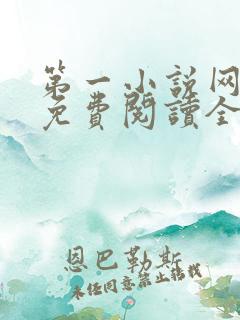 第一小说网
免費閱讀全
恩巴勒斯
未经同意禁止转载